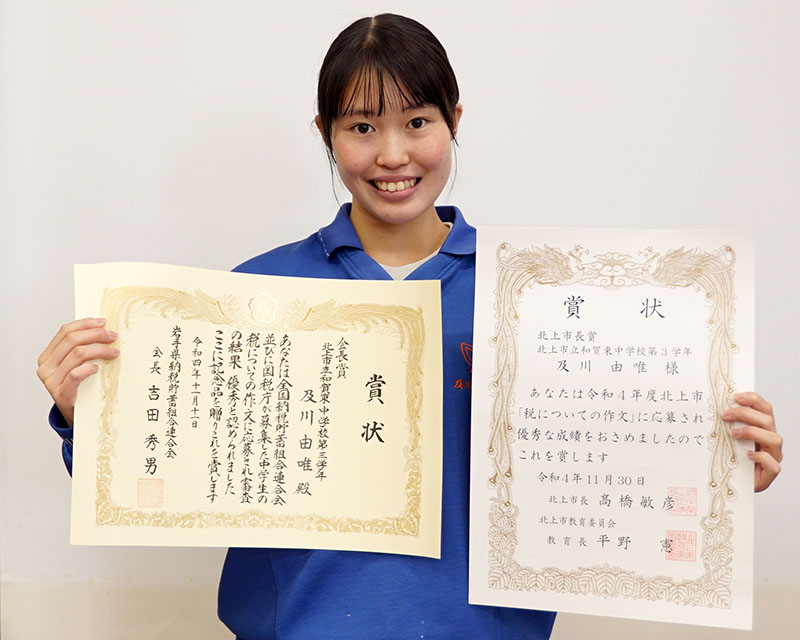 賞状
会長賞
北上市立和賀東中学校第三学年
及川由唯 殿
あなたは全国納税貯蓄組合連合会
並びに国税庁が募集した中学生の
税についての作文に応募され審査
の結果優秀と認められました
ここに記念品を贈りこれを賞します
令和四年十一月十一日
岩手県納税貯蓄組合連合会
会長 吉田秀男
賞 状
北上市長賞
北上市立和賀東中学校第3学年
及川 由唯 様
あなたは令和4年度北上市
「税についての作文」に応募され
優秀な成績をおさめましたので
これを賞します
令和4年11月30日
北上市長 髙橋敏彦
北上市教育委員会
教育長 平野 憲
及